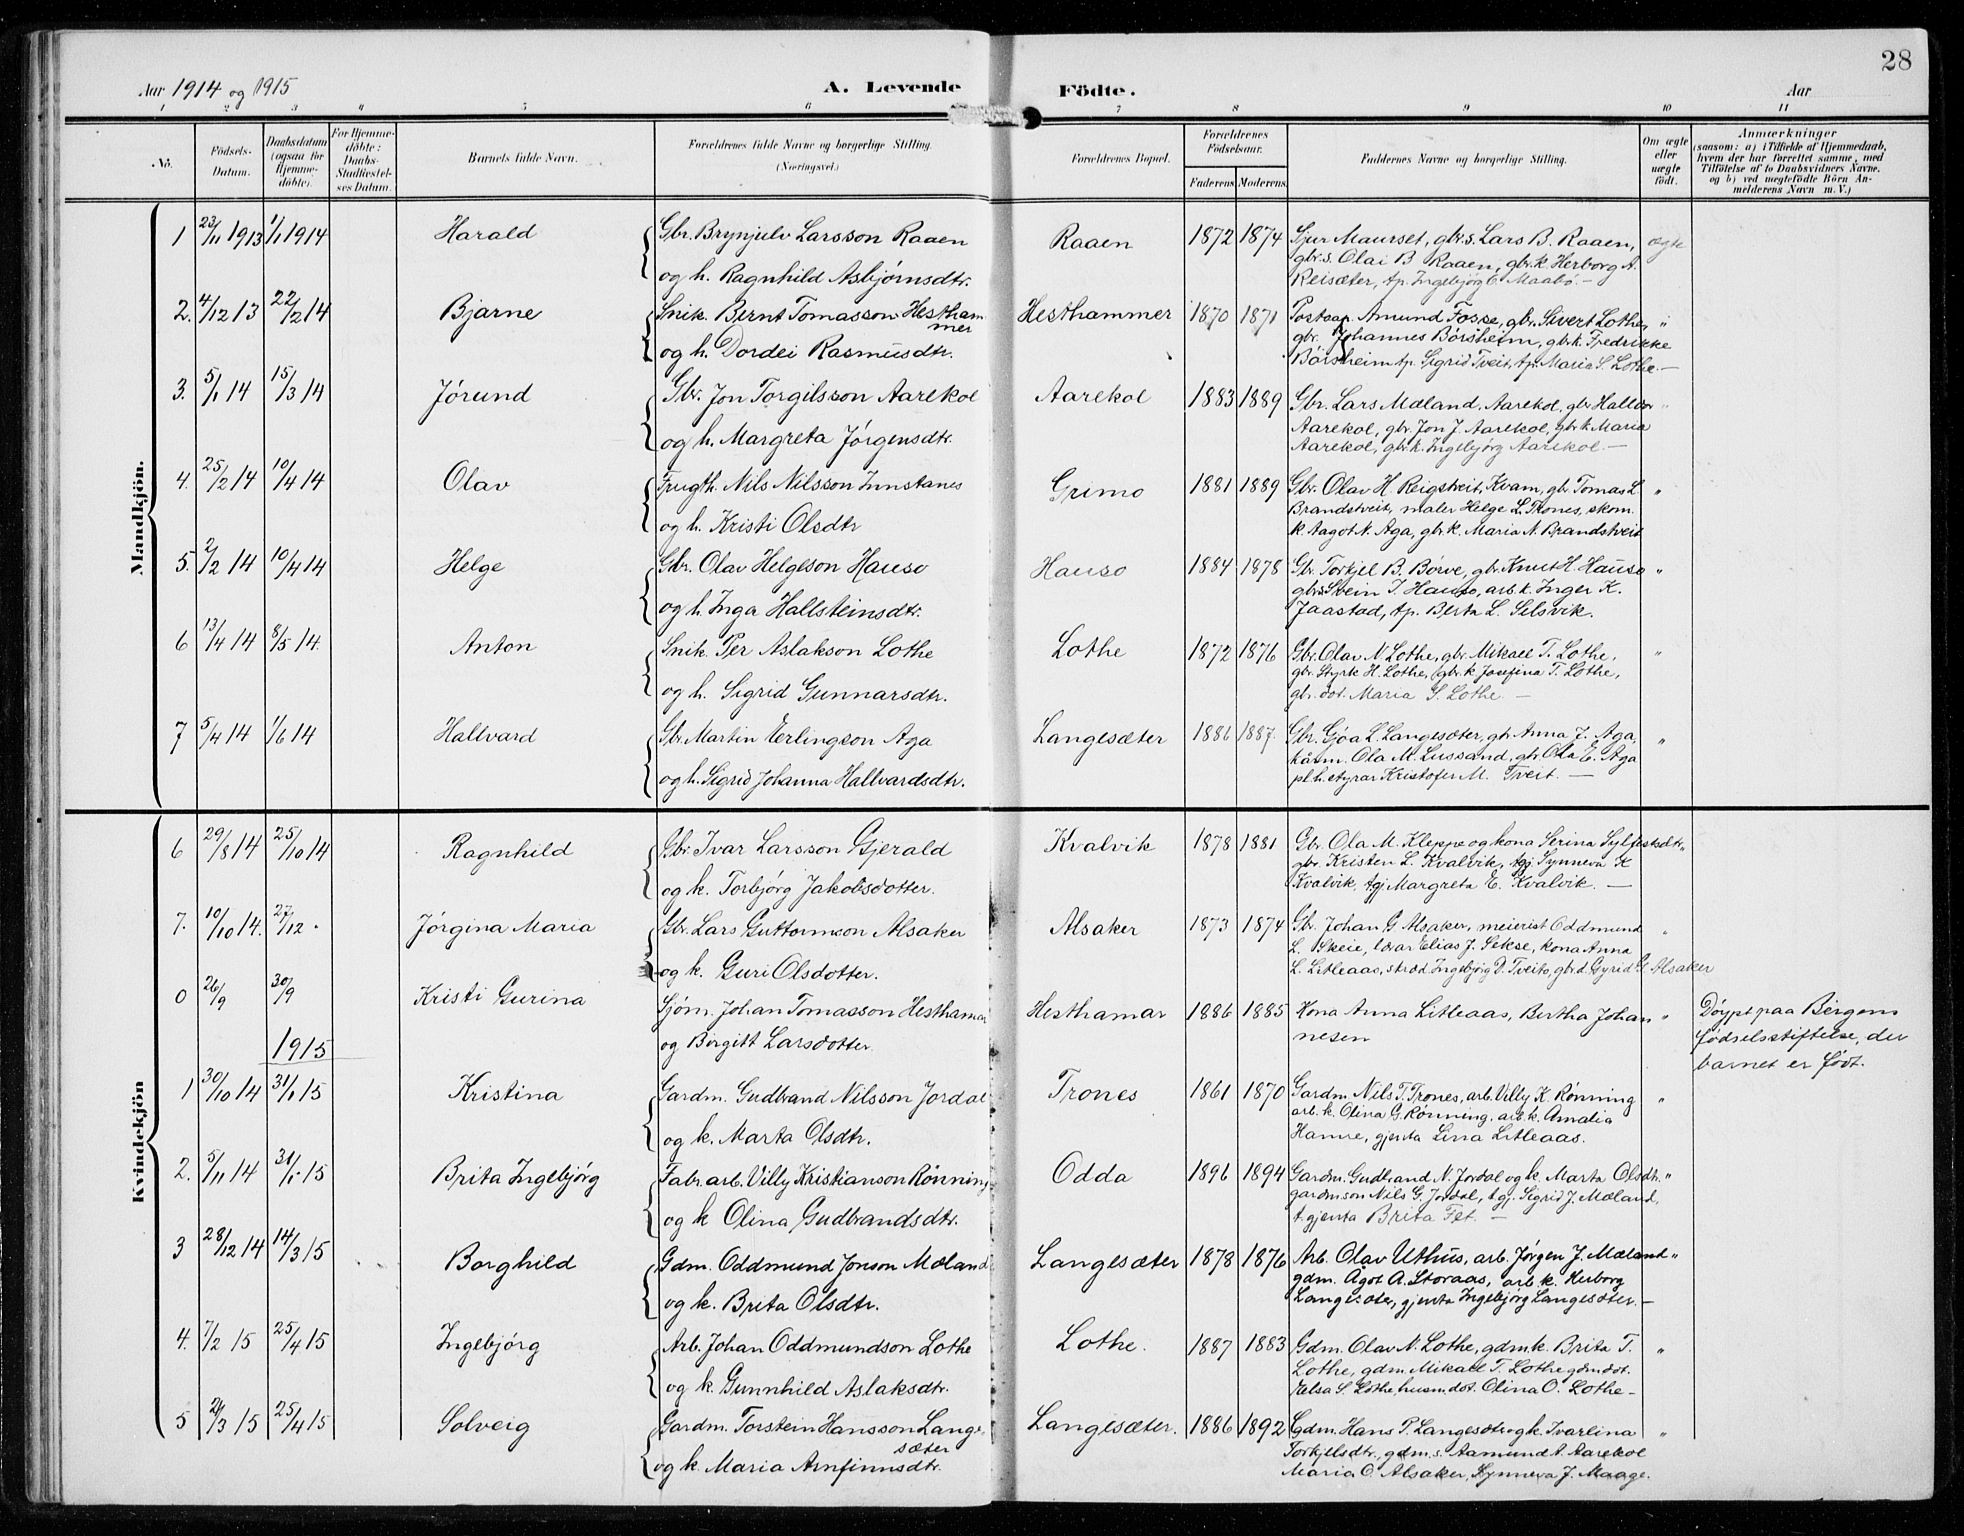 28
Aar 1914 og 1915 A. Levende Födte. Aar
1 2 3 " 5 6 7 8 9 10 11
Nô. Födsels-Datum. Daabsdatum (ogsaa for Hjemme-döbte). For Hjemme-döbte: Daabs-Stadfæstel-ses Datum. Barnets fulde Navn. Forældrenes fulde Navne og borgerlige Stilling. (Næringsvei.) Forældrenes Bopæl. Forældrenes Födselsaar. Faderens Moderens Faddernes Navne og borgerlige Stilling. Om ægte eller uægte födt. Anmærkninger (saasom: a) i Tilfælde af Hjemmedaab, hvem der har forrettet samme, med Tilföielse af to Daabsvidners Navne. og b) ved uægtefödte Börn An-melderens Navn m. V.)
Mandkjön.
1 23/11 1913 1/1 1914 Harald Gbr. Brynjulv Larsson Raaen Raaen 1872 1874 Sjur Maurset, gbr.s. Lars B. Raaen, ægte
gbr.s. Olai B Raaen, gbr.k. Herborg A.
og h. Ragnhild Asbjørnsdtr. Reisæter, tp. Ingebjørg E. Maabø. —
2. 4/12 13 22/2 14 Bjarne Snik. Bernt Tomasson Hestham Hesthammer 1870 1871 Postaap. Amund Fosse, gbr. Sivert Lothe, "
mer gbr. Johannes Börsheim, gbr.k. Fredrikke
og h. Dordei Rasmusdtr. Börsheim tp. Sigrid Tveit, tp. Maria S. Lothe. —
3. 5/1 14 15/3 14 Jórund Gbr. Jon Torgilsson Aarekol Aarekol 1883 1889 Gbr. Lars Mæland, Aarekol, gbr Halldor "
Aarekol, gbr. Jon J. Aarekol, gbr.k. Maria
og h. Margreta Jørgensdtr. Aarekol, gbr.k. Ingebjørg Aarekol. —
4. 25/2 14 10/4 14 Olav Frugth. Nils Nilsson Innstanes Grimo 1881 1889 Gbr. Olav H. Reigstveit, Kvam, gbr. Tomas L. "
Brandstveit, maler Helge L. Trones, skom.
og h. Kristi Olsdtr k. Aagot N. Aga, gbr.k. Maria N. Brandstveit
5. 2/2 14 10/4 14 Helge Gbr. Olav Helgeson Hauso Hauso 1884 1878 Gbr. Torkjel B. Börve, gbr. Knut H. Hauso "
gbr.s Svein T. Hauso, arb.k. Inger K.
og h. Inga Hallsteinsdtr. Jaastad, tp. Berta L. Selsvik.
6 13/4 14 8/5 14. Anton Snik. Per Aslakson Lothe Lothe 1872 1876 Gbr. Olav N Lothe, gbr. Mikael T. Lothe, "
gbr. Styrk H. Lothe, gbr.k Josefina T. Lothe,
og h. Sigrid Gunnarsdtr. gbr.dot. Maria S. Lothe. —
7 5/4 14 1/6 14 Hallvard Gbr. Martin Erlingson Aga Langesæter 1881 1887. Gbr. Gjøa L. Langesæter, gbr Anna J. Aga, "
Ola M. Lussand, gbr. Ola E. Aga
og h. Sigrid Johanna Hallvardsdtr. pl.h.styrar Kristofer M. Tveit. —
Kvindekjön
6 29/8 14 25/10 14 Ragnhild Gbr. Ivar Larsson Gjerald Kvalvik 1878 1881 Gbr. Ola M. Kleppe og kona Serina Sylfestsdtr. "
gbr. Kristen L. Kvalvik, tgj Synneva K
og k. Torbjórg Jakobsdotter. Kvalvik, tgj Margreta E. Kvalvik. —
7. 10/10 14. 27/12 . Jórgina Maria Gbr. Lars Guttormson Alsaker Alsaker 1873 1874 Gbr. Johan G Alsaker, meierist Oddmund "
L. Skeie, lærar Elias J. Sekse, kona Anna
og k. Guri Olsdotter. L. Litleaas, stud. Ingebjørg D. Tveito, gbr.d. Gyrid G. Alsaker
0 26/9 30/9 Kristi Gurina Sjóm. Johan Tomasson Hesthamar Hesthamar 1886 1885 Kona Anna Litleaas, Bertha Johan " Dóypt paa Bergens
og Birgitt Larsdotter. nesen födselsstiftelse, der
1915 barnet er født.
1 30/10 14 31/1 15 Kristina Gardm. Gudbrand Nilsson Jordal Trones 1861 1870 Gardm. Nils T. Trones, arb. Villy K. Rønning "
arb.k. Olina G. Rønning. arb.k. Amalia
og k. Marta Olsdtr. Hamre, gjenta Lina Litleaas.
2. 5/11 14 31/1 15 Brita Ingebjórg Fabr.arb. Villy Kristianson Rønning Odda 1891 1894 Gardm. Gudbrand N. Jordal og k. Marta Olsdtr. "
gardmson Nils G. Jordal, t.gj. Sigrid J. Mæland,
og k Olina Gudbrandsdtr. t.gjenta Brita Fet. —
3 28/12 14 14/3 15 Borghild Gdm. Oddmund Jonson Mæland Langesæter 1878 1876 Arb. Olav Uthus, arb. Jórgen J. Mæland "
gdm. Ågot A. Storaas, arb.k. Herborg
og k. Brita Olsdtr. Langesæter, gjenta Ingebjórg Langesæter. —
4. 7/2 15 25/4 15 Ingebjórg Arb. Johan Oddmundson Lothe Lothe. 1887 1883 Gdm. Olav N. Lothe, gdm.k. Brita T. "
Lothe, gdm. Mikael T. Lothe gdmdot.
og k. Gunnhild Aslaksdtr. Jelsa S. Lothe, husm.dot. Olina O. Lothe —
5 21/3 15 25/4 15 Solveig Gardm. Torstein Hansson Lange- Langesæter. 1886 1892 Gdm. Hans P. Langesæter og k. Ivarlina "
sæter Torkjellsdtr, gdm.s. Aamund A. Aarekol
og k. Maria Arnfinnsdtr. Maria O. Alsaker, Synneva J. Maage.